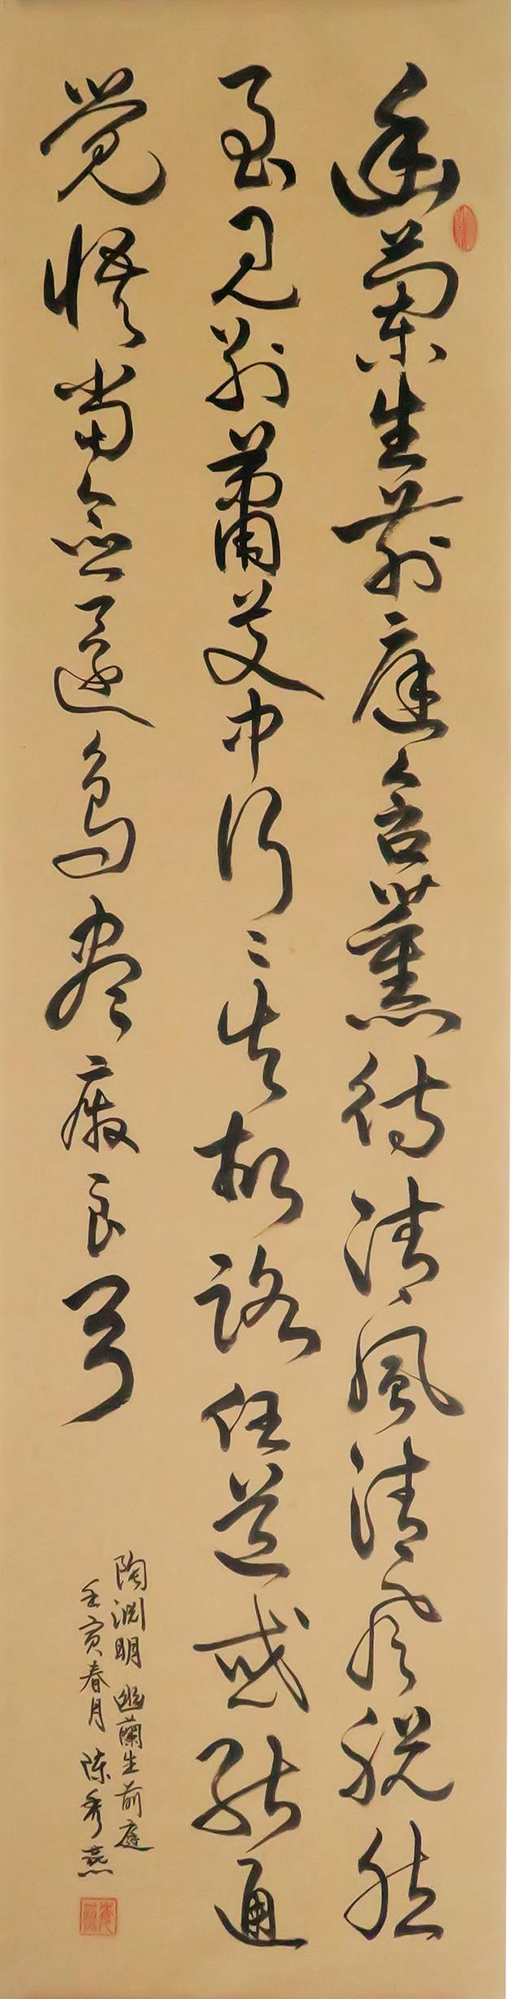 幽蘭生前庭含薰待清風清風脱然
至見別蕭艾中行〻失故路任道或能通
覺悟當念還鳥盡廢良弓
陶淵明幽蘭生前庭
壬寅春月陈秀燕